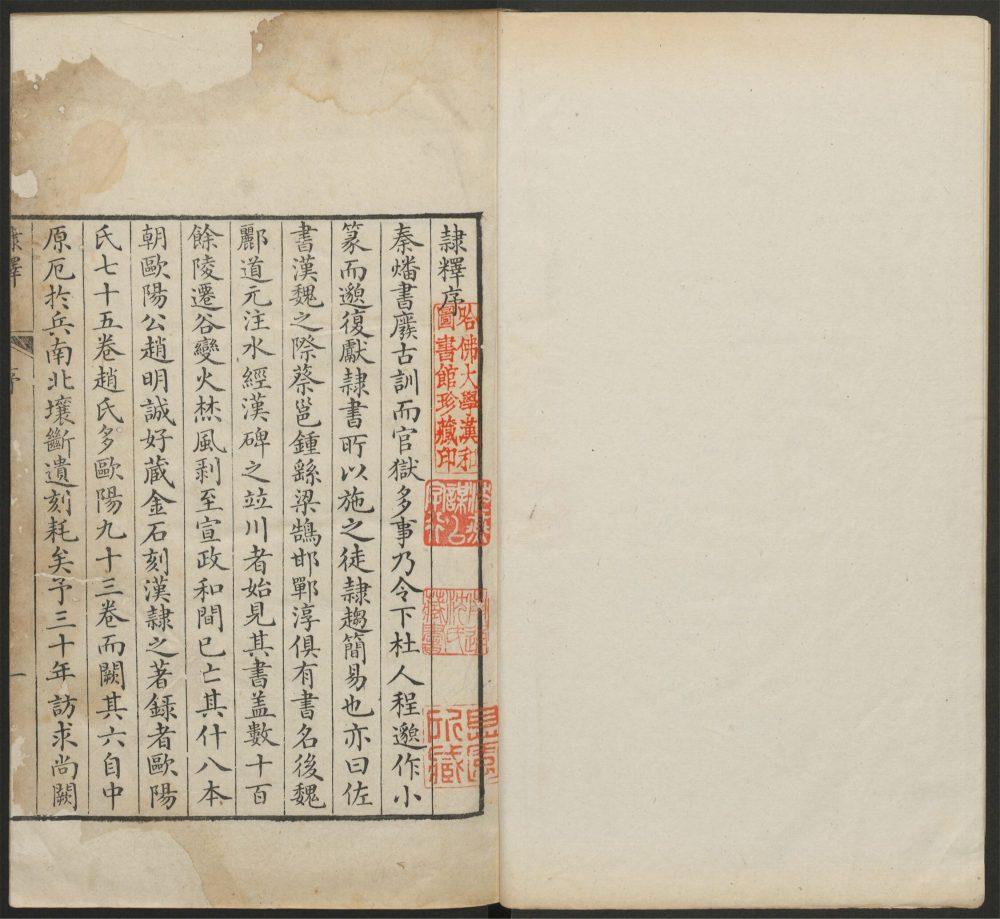 隷釋序
秦燔書廢古訓而官獄多事乃令下杜人程邈作小
篆而邈復獻隷書所以施之徒隷趨簡易也亦曰佐
書漢魏之際蔡邕鍾繇梁鵠邯鄲淳俱有書名後魏
酈道元注水經漢碑之竝川者始見其書盖數十百
餘陵遷谷變火焚風剥至宣政和間已亡其什八本
朝歐陽公趙明誠好藏金石刻漢隷之著録者歐陽
氏七十五卷趙氏多歐陽九十三卷而闕其六自中
原厄扵兵南北壤斷遺刻耗矣予三十年訪求尚闕
隷釋
序
一
哈佛大學漢和
圖書館珍藏印
沈氏
藏書
所藏